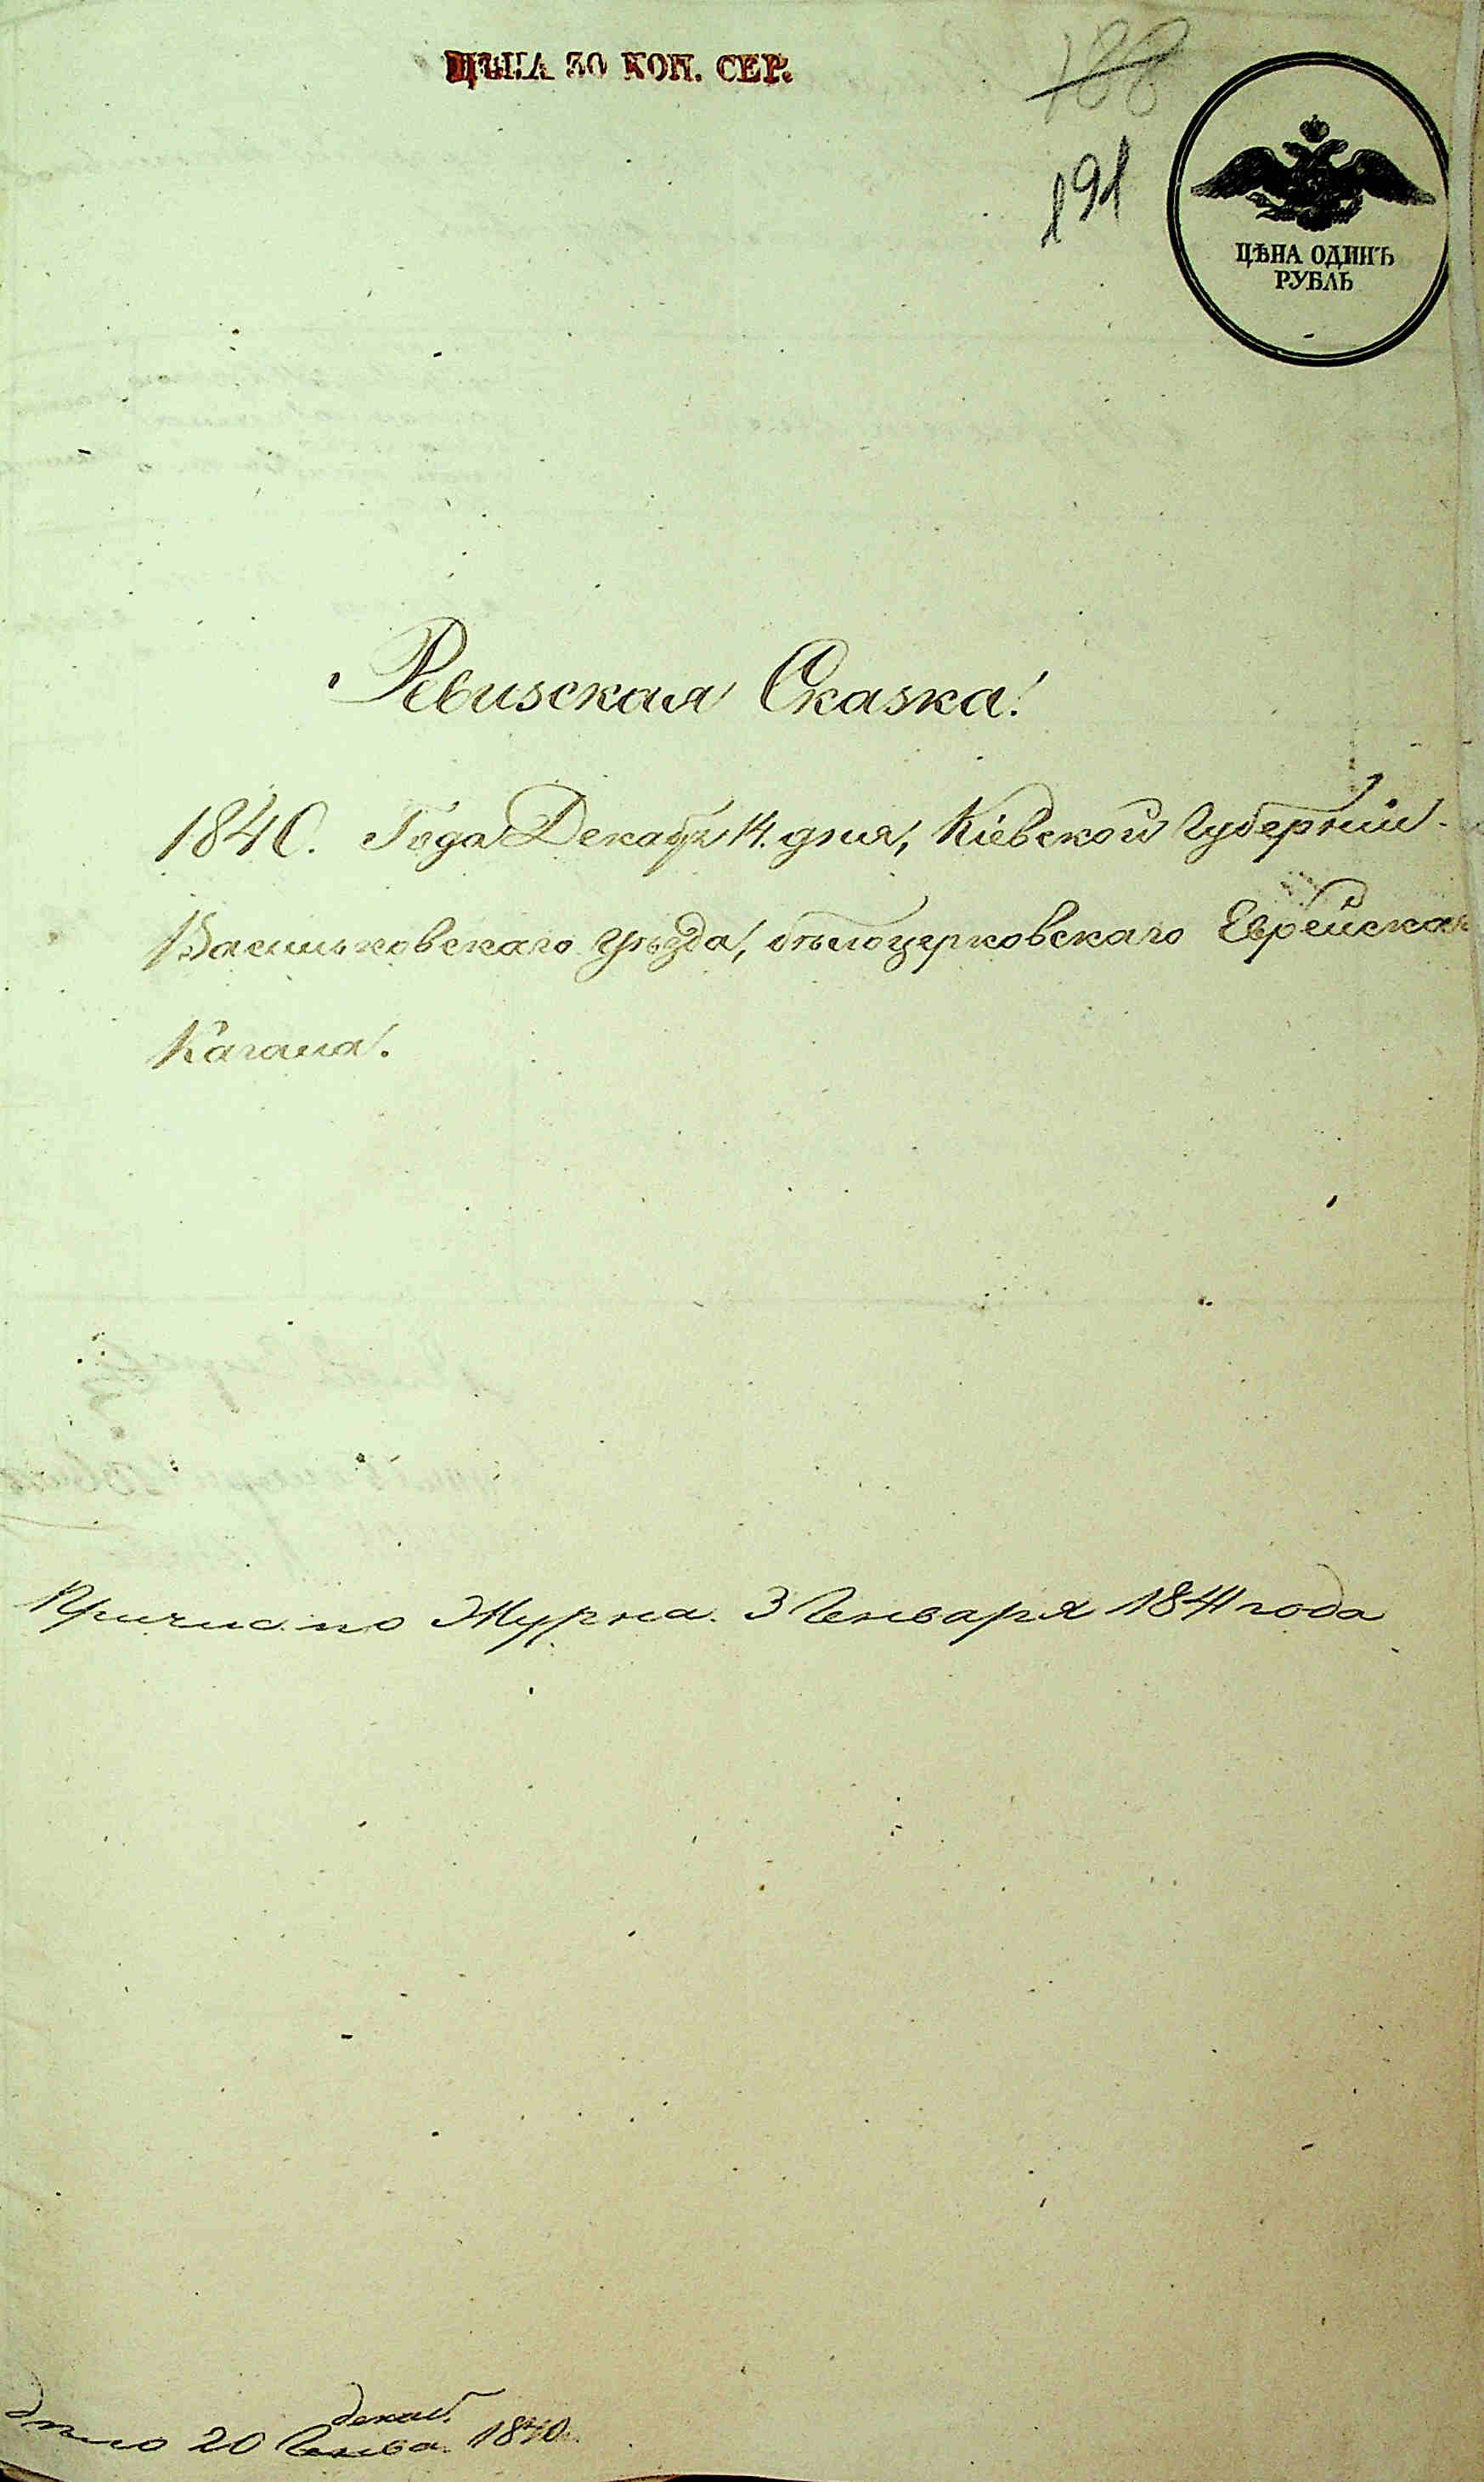 ЦѢНА 30 КОП. СЕР.
188
191
ЦѢНА ОДИНЪ
РУБЛЬ
Ревизская Сказка!
1840. Года Декабря 14. дня, Кіевской Губерніи
Васильковскаго уѣзда, бѣлоцерковскаго Еврейскаг
Кагала.
Причис. по Журна. 3 Генваря 1841 года
декаб.
дѣло 20 Генва. 1840.